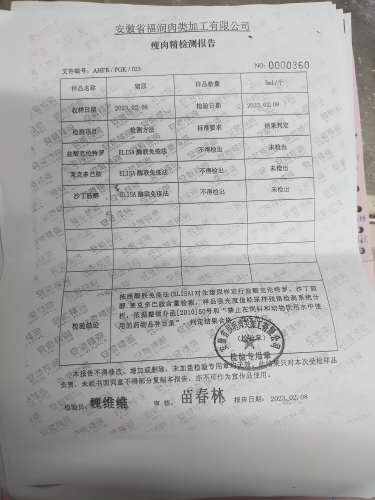 安徽省福润肉类加工有限公司
瘦肉精检测报告
文件编号：AHFR/PGK/023 NO:0000360
样品名称 猪尿 样品数量 5ml/个
收样日期 2023.02.08 检验日期 2023.02.08
检测项目 检测方法 标准要求 结果判定
盐酸克伦特罗 ELISA酶联免疫法 不得检出 未检出
莱克多巴胺 ELISA酶联免疫法 不得检出 未检出
沙丁胺醇 ELISA酶联免疫法 不得检出 未检出
检验结论
按酶联免疫法(ELISA)对生猪尿样进行盐酸克伦特罗、沙丁胺
醇、莱克多巴胺含量检测，样品该光度值经尿样残留检测系统分
析，依据整顿办函[2010]50号和"禁止在饲料和动物饮用水中使
用的药物品种目录"，判定结果合格。
安徽省福润肉类加工有限公司
(检验章)
检验专用章
本报告不得修改、增加或删除，未加盖检验专用章均无效，此结果只对本次受检样品
负责，未经书面同意不得部分复制本报告，亦不可作为宣传品使用。
检验员：魏维维 审核：苗春林 报告日期：2023.02.08